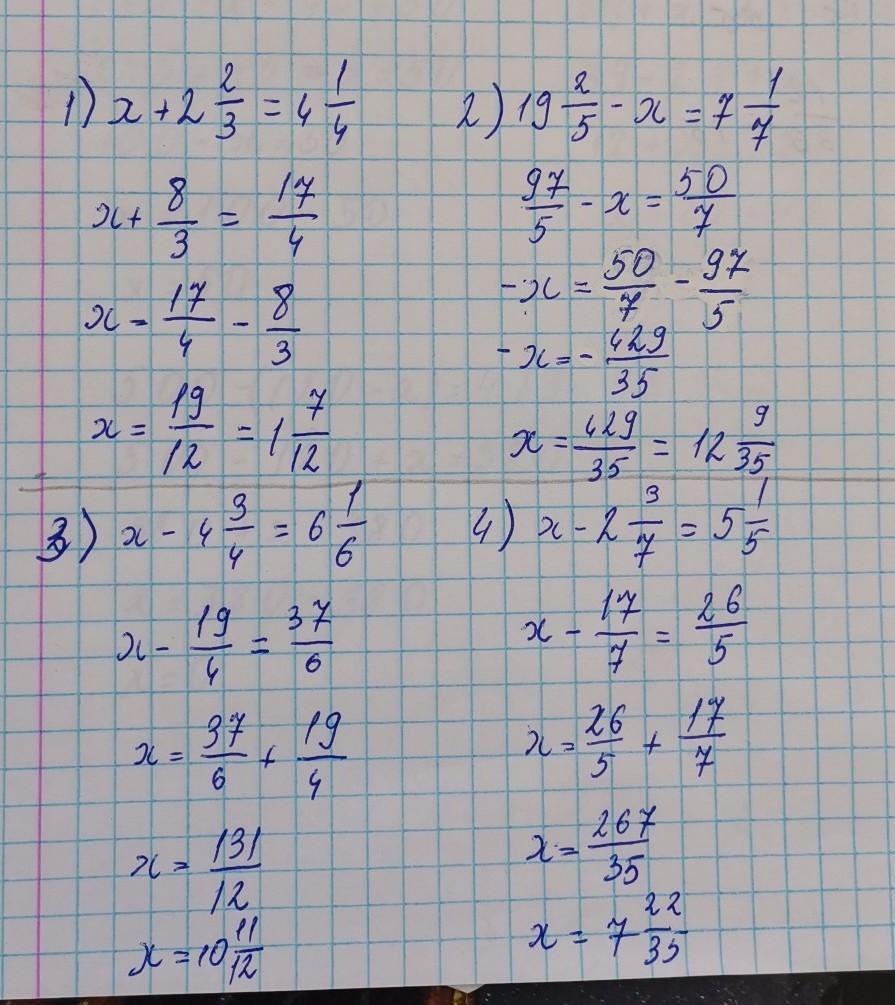 1) x + 2 2/3 = 4 1/4
x + 8/3 = 17/4
x = 17/4 - 8/3
x = 19/12 = 1 7/12
2) 19 2/5 - x = 7 1/7
97/5 - x = 50/7
-x = 50/7 - 97/5
-x = - 429/35
x = 429/35 = 12 9/35
3) x - 4 3/4 = 6 1/6
x - 19/4 = 37/6
x = 37/6 + 19/4
x = 131/12
x = 10 11/12
4) x - 2 3/7 = 5 1/5
x - 17/7 = 26/5
x = 26/5 + 17/7
x = 267/35
x = 7 22/35